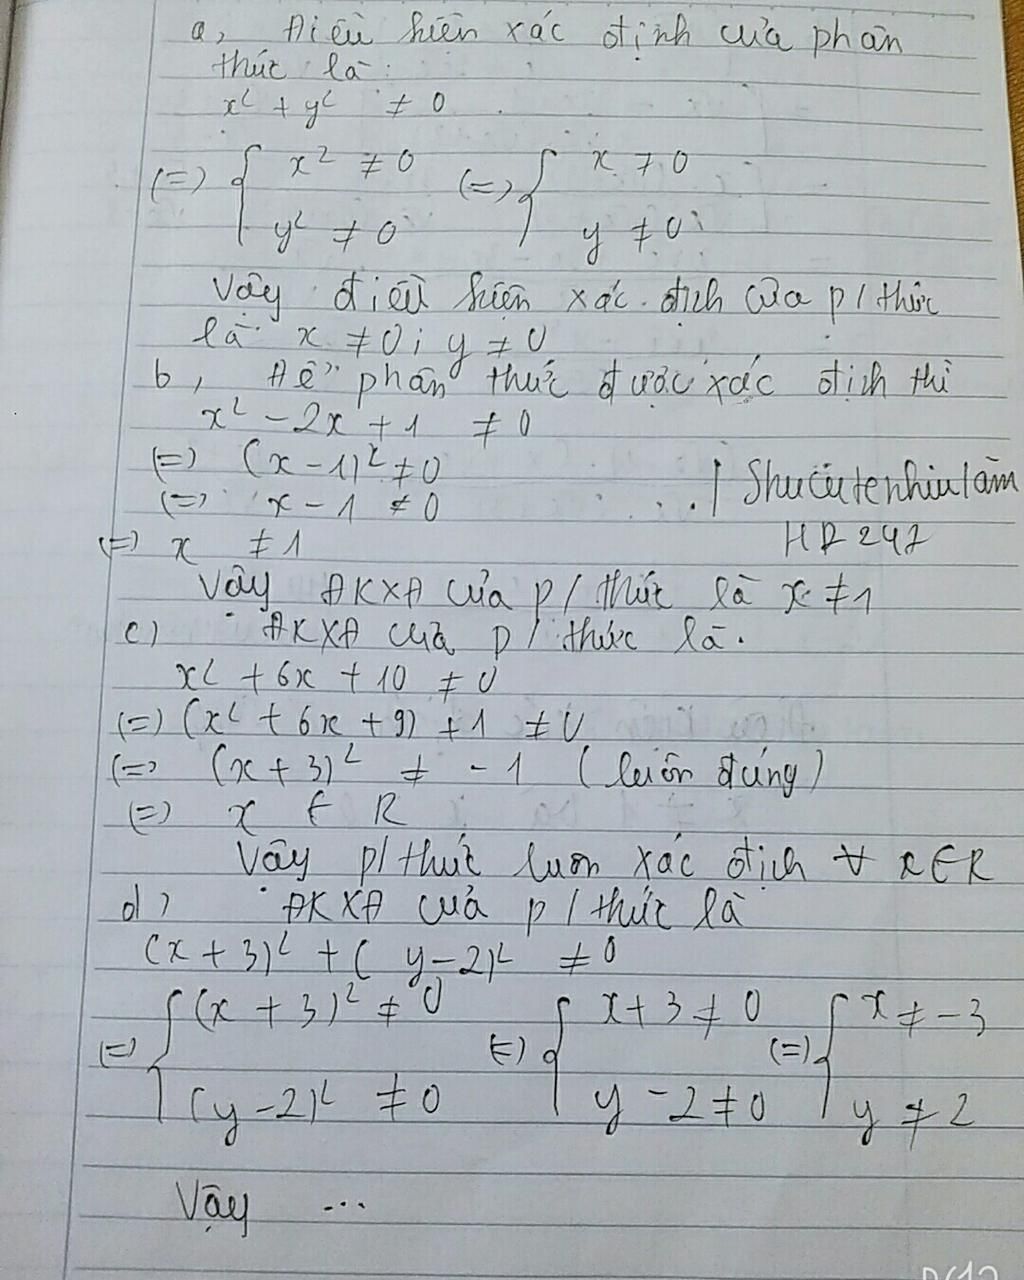 a, Điều kiện xác định của phân
thức là:
x² + y² ≠ 0
(=) { x² ≠ 0 (=) { x ≠ 0
y² ≠ 0 y ≠ 0
Vậy điều kiện xác định của p/thức
là x ≠ 0; y ≠ 0
b, Để phân thức được xác định thì
x² - 2x + 1 ≠ 0
(=) (x - 1)² ≠ 0
(=) x - 1 ≠ 0
Shucutenhiulâm
HD 247
(=) x ≠ 1
Vậy ĐKXĐ của p/thức là x ≠ 1
c) ĐKXĐ của p/thức là.
x² + 6x + 10 ≠ 0
(=) (x² + 6x + 9) + 1 ≠ 0
(=) (x + 3)² ≠ - 1 (luôn đúng)
(=) x ∈ R
Vậy p/thức luôn xác định ∀ x ∈ R
d) ĐKXĐ của p/thức là
(x + 3)² + ( y - 2)² ≠ 0
(=) { (x + 3)² ≠ 0 (=) { x + 3 ≠ 0 (=) { x ≠ -3
(y - 2)² ≠ 0 y - 2 ≠ 0 y ≠ 2
Vậy ...